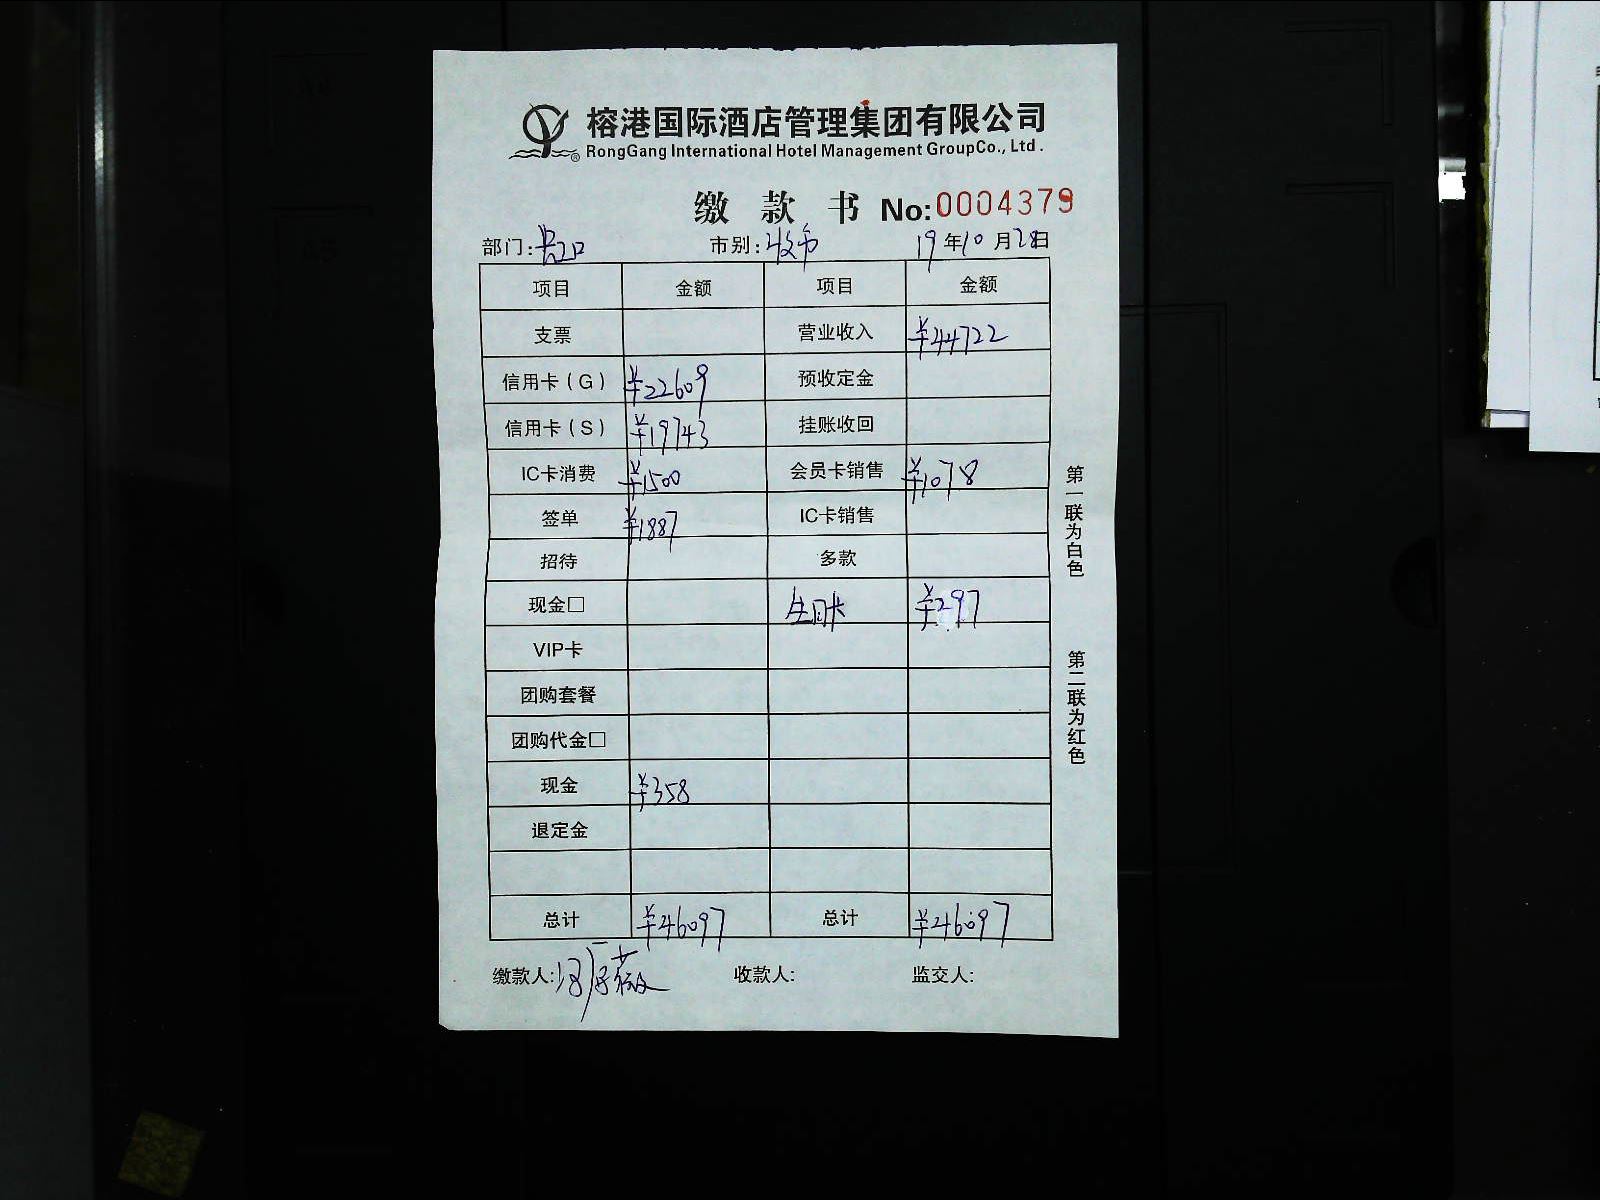 榕港国际酒店管理集团有限公司
RongGang International Hotel Management GroupCo., Ltd.
缴款书 No:0004379
部门: 市别:收市 19年10月28日
项目 金额 项目 金额
支票 营业收入 ¥44722
信用卡(G) ¥22609 预收定金
信用卡(S) ¥19743 挂账收回
IC卡消费 ¥1500 会员卡销售 ¥1078
签单 ¥1887 IC卡销售
招待 多款
现金□ 生日卡 ¥297
VIP卡
团购套餐
团购代金□
现金 ¥358
退定金
总计 ¥46097 总计 ¥46097
缴款人: 收款人: 监交人:
第一联为白色
第二联为红色